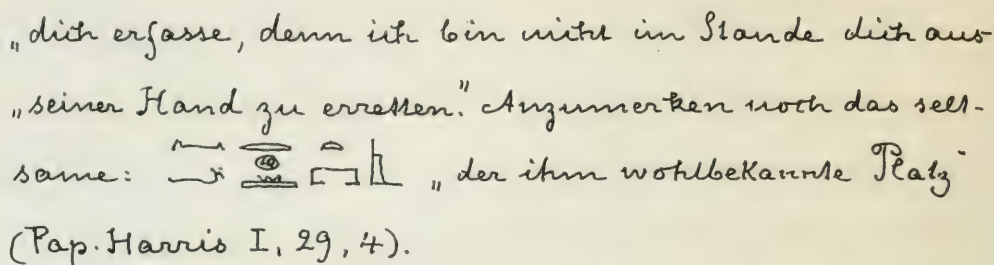 „dich erfasse, denn ich bin nicht im Stande dich aus-
„seiner Hand zu erretten.“ Anzumerken noch das selt-
same: „der ihm wohlbekannte Platz“
(Pap. Harris I, 29, 4).